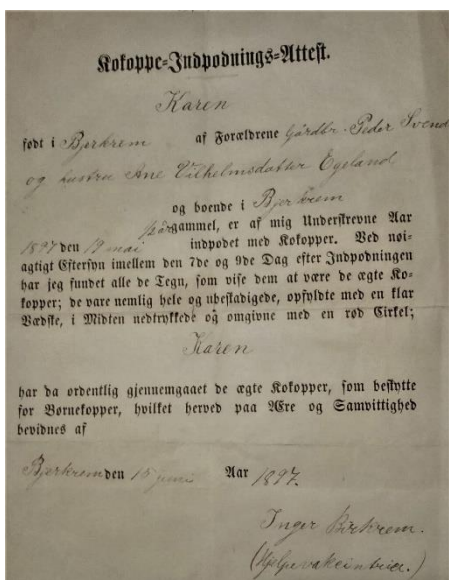 Kokoppe-Indpodnings-Attest.
Karen
født i Bjerkrem af Forældrene Gårdbr. Peder Svend
og hustru Ane Vilhelmsdatter Egeland
og boende i Bjerkrem
1/2 år gammel, er af mig Understrevne Aar
1897 den 19 mai indpodet med Kokopper. Ved nøi-
agtigt Eftersyn imellem den 7de og 9de Dag efter Indpodningen
har jeg fundet alle de Tegn, som vise dem at være de ægte Ko-
kopper; de vare nemlig hele og ubestadigede, opfyldte med en klar
Vædske, i Midten nedtrykkede og omgivne med en rød Cirkel;
Karen
har da ordentlig gjennemgaaet de ægte Kokopper, som beskytte
for Børnekopper, hvilket herved paa Ære og Samvittighed
bevidnes af
Bjerkrem den 15 juni Aar 1897.
Inger Birkrem.
(Hjelpevakcintrice.)